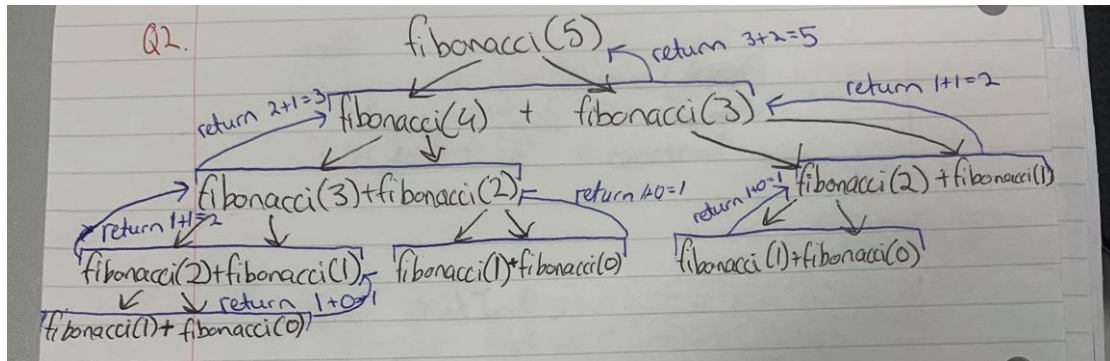 Q2.
fibonacci(5)
return 3+2=5
return 2+1=3
fibonacci(4) + fibonacci(3)
return 1+1=2
fibonacci(3)+fibonacci(2)
return 1+0=1
return 1+0=1
fibonacci(2) +fibonacci(1)
return 1+1=2
fibonacci(2)+fibonacci(1)
fibonacci(1)+fibonacci(0)
fibonacci(1)+fibonacci(0)
return 1+0=1
fibonacci(1)+ fibonacci(0)